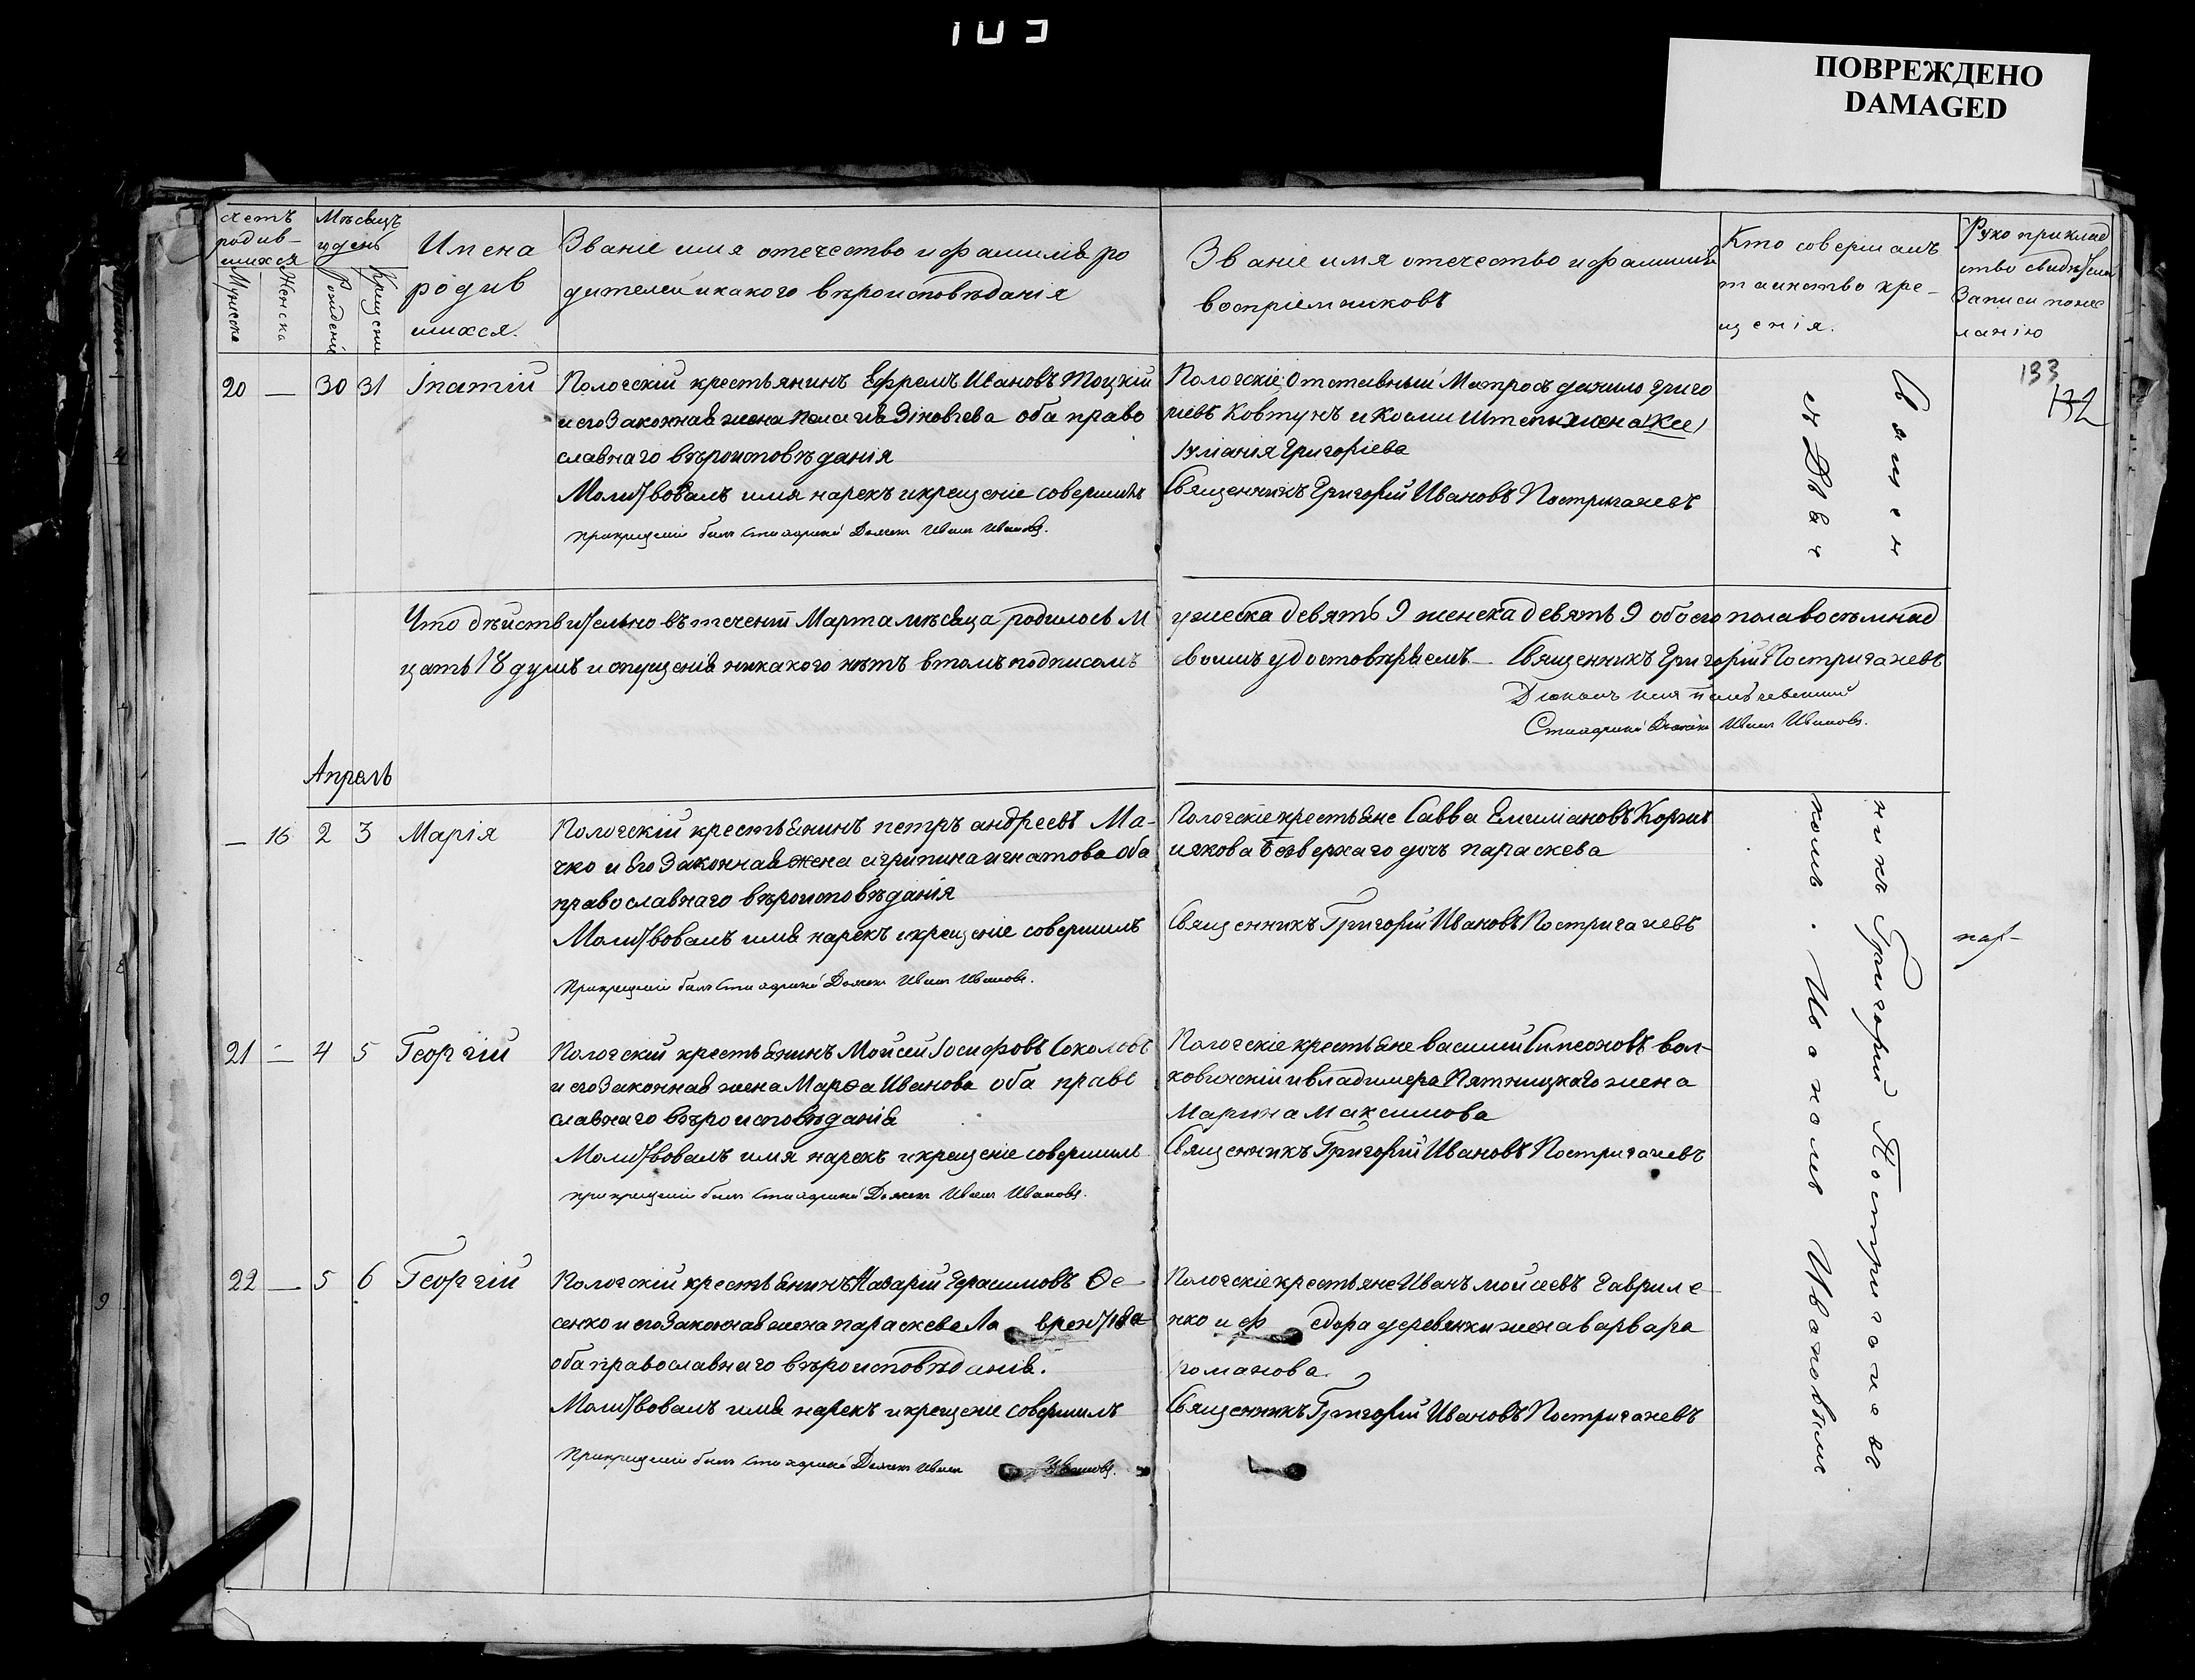 103
ПОВРЕЖДЕНО
DAMAGED
счетъ родив-шихся
Мужеска
Женска
Мѣсяцъ и день
Рожденія
Крещенія
Имена родив шихся.
Званіе имя отечество и фамилія ро
дителей и какого вѣроисповѣданія
Званіе имя отечество и фамилія
воспріемниковъ
Кто совершалъ
таинство кре-
щенія.
Руко приклад
ство свидѣтелей
записи по же
ланію
133
132
20 — 30 31 Іпатій
Пологскій крестьянинъ Ефремъ Ивановъ Тоцкій
и его Законная жена Пелагия Зіновъева оба право
славнаго вѣроисповѣданія
Молитвовалъ имя нарекъ и крещеніе совершилъ
При крещеніи былъ Стихарный Дьячекъ Иванъ Ивановъ.
Пологскіе Отставный Матросъ данило григо
ріевъ Ковтунъ и жена
Григоріева
Священникъ Григорій Ивановъ Постригачевъ
Что дѣйствительно въ теченіи Марта мѣсяца родилось м
ужеска девять 9 женска девять 9 обоего пола восѣмнад
цать 18 душъ и опущенія никакого нѣтъ в томъ подписомъ
своимъ удостовѣряемъ. Священникъ Григорій Постригачевъ
Стихарный Дьячекъ Иванъ Ивановъ.
Апрель
— 16 2 3 Марія
Пологскій крестьянинъ петръ андреевъ Ма-
чко и его Законная жена агрипина игнатова оба
православнаго вѣроисповѣданія
Молитвовалъ имя нарекъ и крещеніе совершилъ
При крещеніи былъ Стихарный Дьячекъ Иванъ Ивановъ.
Пологскіе крестьяне Савва Емилиановъ
и якова Безверхаго дочь параскева
Священникъ Григорій Ивановъ Постригачевъ
21 — 4 5 Георгій
Пологскій крестьянинъ Мойсей Іосифовъ Соколовъ
и его Законная жена Марѳа Иванова оба право
славнаго вѣроисповѣданія
Молитвовалъ имя нарекъ и крещеніе совершилъ
при крещеніи былъ Стихарный Дьячекъ Иванъ Ивановъ.
Пологскіе крестьяне василий Симеоновъ вол-
ковинскій и владимера Пятницкаго жена
Марина Максимова
Священникъ Григорій Ивановъ Постригачевъ
22 — 5 6 Георгій
Пологскій крестьянинъ Назарій Герасимовъ Ѳе-
сенко и его Законная жена параскева Ла врентіева
оба православнаго вѣроисповѣданія.
Молитвовалъ имя нарекъ и крещеніе совершилъ
При крещеніи былъ Стихарный Дьячекъ Иванъ Ивановъ.
Пологскіе крестьяне Иванъ мойсеевъ гавриле
нко и ф едора деревянки жена варвара
романова.
Священникъ Григорій Ивановъ Постригачевъ
Священ
никъ Григорій Постригачевъ
съ Дьяч
комъ. Иваномъ Ивановымъ